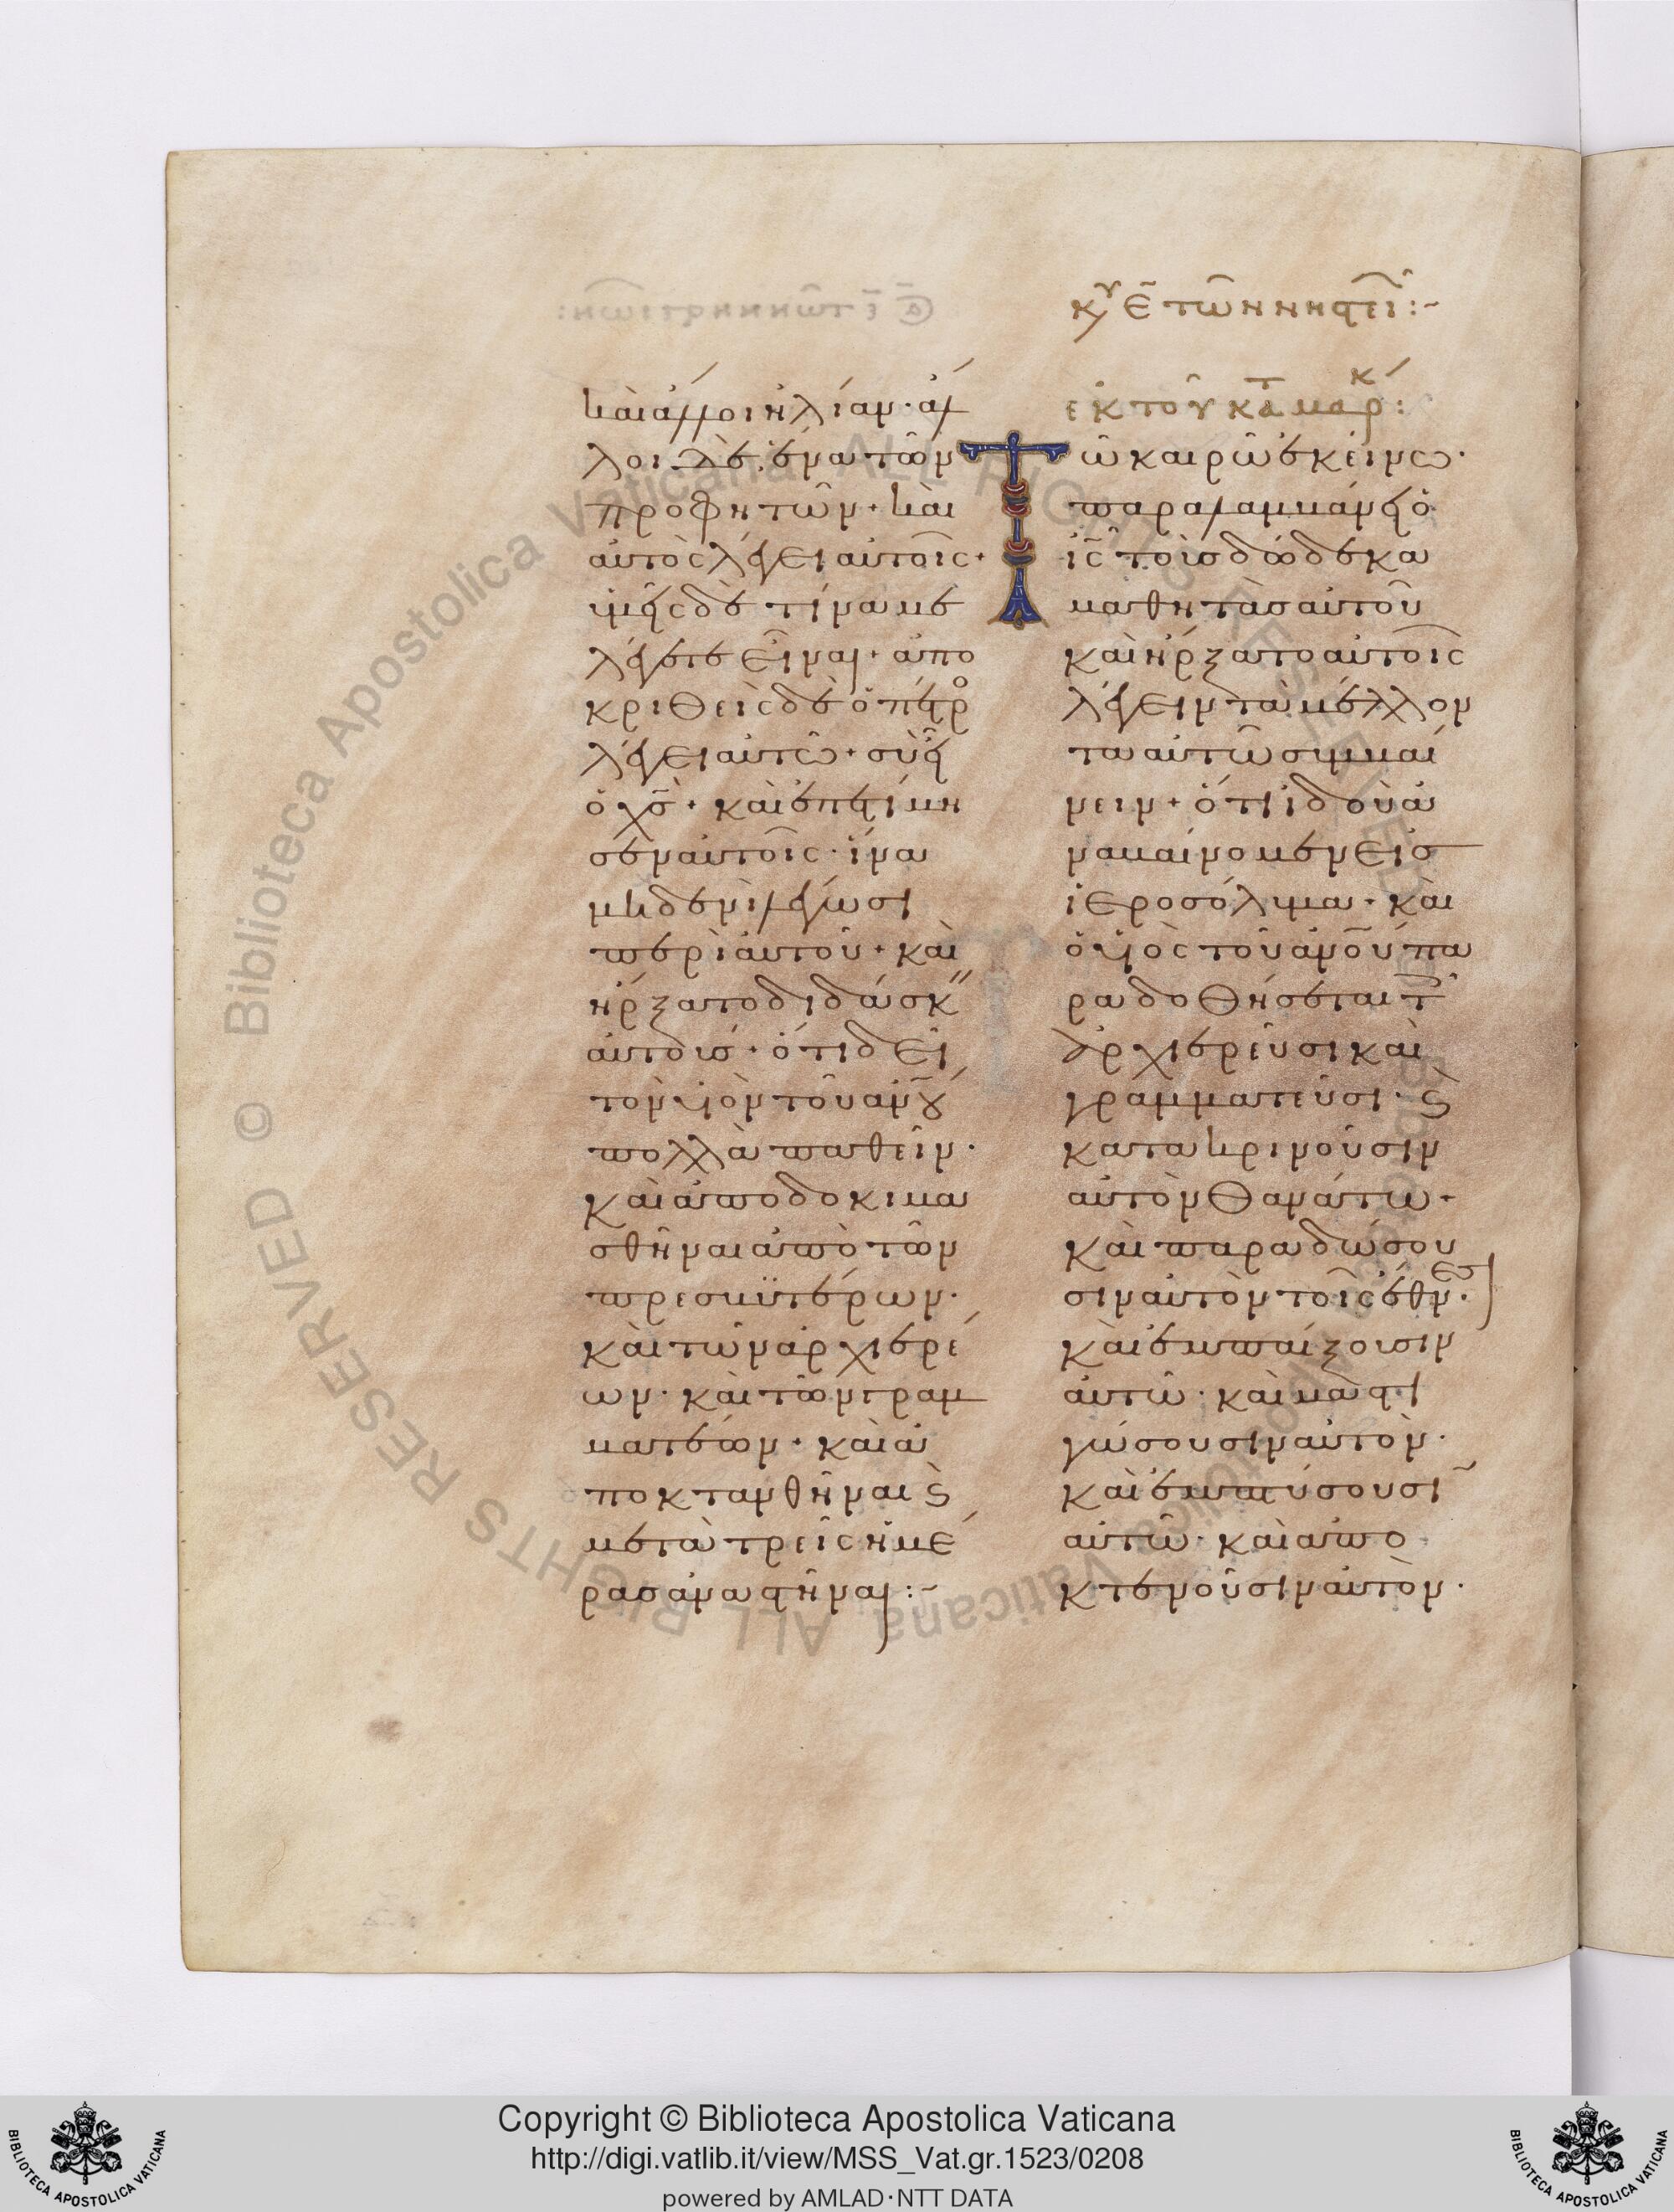 κυ ε τῶν νηστει:~
καὶ ἄλλοι ἠλίαν· ἄλ
λοι δὲ ἕνα τῶν
προφητῶν· καὶ
αὐτὸς λέγει αὐτοῖς·
ὑμεῖς δὲ τίνα με
λέγετε εἶναι· ἀπο
κριθεὶς δὲ ὁ πέτρο
λέγει αὐτῶ· σὺ εἶ
ὁ χς· καὶ ἐπετίμη
σεν αὐτοῖς· ἵνα
μηδενὶ λέγωσι
περὶ αὐτοῦ· καὶ
ἤρξατο διδάσκ
αὐτούς· ὅτι δεῖ
τὸν υἱὸν τοῦ ανου
πολλὰ παθεῖν·
καὶ ἀποδοκιμα
σθῆναι ἀπὸ τῶν
πρεσβυτέρων·
καὶ τῶν ἀρχιερέ
ων· καὶ τῶν γραμ
ματέων· καὶ ἀ
ποκτανθῆναι ϛ
μετὰ τρεῖς ἡμέ
ρας ἀναστῆναι:~
ἐκ τοῦ κατα μάρκ:
Τῶ καιρῶ ἐκείνω·
παραλαμβάνει ὁ
ις τοὺς δώδεκα
μαθητὰς αὐτοῦ
καὶ ἤρξατο αὐτοῖς
λέγειν τὰ μέλλον
τα αὐτῶ συμβαί
νειν· ὅτι ἰδοὺ ἀ
ναβαίνομεν εἰς
ἱεροσόλυμα· καὶ
ὁ υἱὸς τοῦ ανου πα
ραδοθήσεται τ
ἀρχιερεῦσι καὶ
γραμματεῦσι· ϛ
κατακρινοῦσιν
αὐτὸν θανάτω·
καὶ παραδώσου
σιν αὐτὸν τοῖς ἔθνεσι·
καὶ ἐμπαίξουσιν
αὐτῶ· καὶ μαστι
γώσουσιν αὐτὸν·
καὶ ἐμπτύσουσι
αὐτῶ· καὶ ἀπο
κτενοῦσιν αὐτὸν·
© Biblioteca Apostolica Vaticana ALL RIGHTS RESERVED
Copyright © Biblioteca Apostolica Vaticana
http://digi.vatlib.it/view/MSS_Vat.gr.1523/0208
powered by AMLAD·NTT DATA
BIBLIOTECA APOSTOLICA VATICANA
BIBLIOTECA APOSTOLICA VATICANA